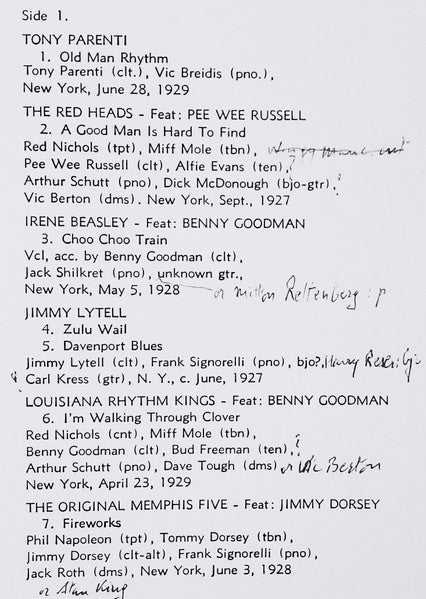 Side 1.
TONY PARENTI
1. Old Man Rhythm
Tony Parenti (clt.), Vic Breidis (pno.),
New York, June 28, 1929
THE RED HEADS - Feat: PEE WEE RUSSELL
2. A Good Man Is Hard To Find
Red Nichols (tpt), Miff Mole (tbn),
Pee Wee Russell (clt), Alfie Evans (ten),?
Arthur Schutt (pno), Dick McDonough (bjo-gtr),?
Vic Berton (dms). New York, Sept., 1927
IRENE BEASLEY - Feat: BENNY GOODMAN
3. Choo Choo Train
Vcl, acc. by Benny Goodman (clt),
Jack Shilkret (pno), unknown gtr.,
New York, May 5, 1928 or Milton Rettenberg : p
JIMMY LYTELL
4. Zulu Wail
5. Davenport Blues
Jimmy Lytell (clt), Frank Signorelli (pno), bjo?, Harry Reser: bj-
Carl Kress (gtr), N. Y., c. June, 1927
LOUISIANA RHYTHM KINGS - Feat: BENNY GOODMAN
6. I'm Walking Through Clover
Red Nichols (cnt), Miff Mole (tbn),
Benny Goodman (clt), Bud Freeman (ten),?
Arthur Schutt (pno), Dave Tough (dms) or Vic Berton
New York, April 23, 1929
THE ORIGINAL MEMPHIS FIVE - Feat: JIMMY DORSEY
7. Fireworks
Phil Napoleon (tpt), Tommy Dorsey (tbn),
Jimmy Dorsey (clt-alt), Frank Signorelli (pno),
Jack Roth (dms), New York, June 3, 1928
or Stan King